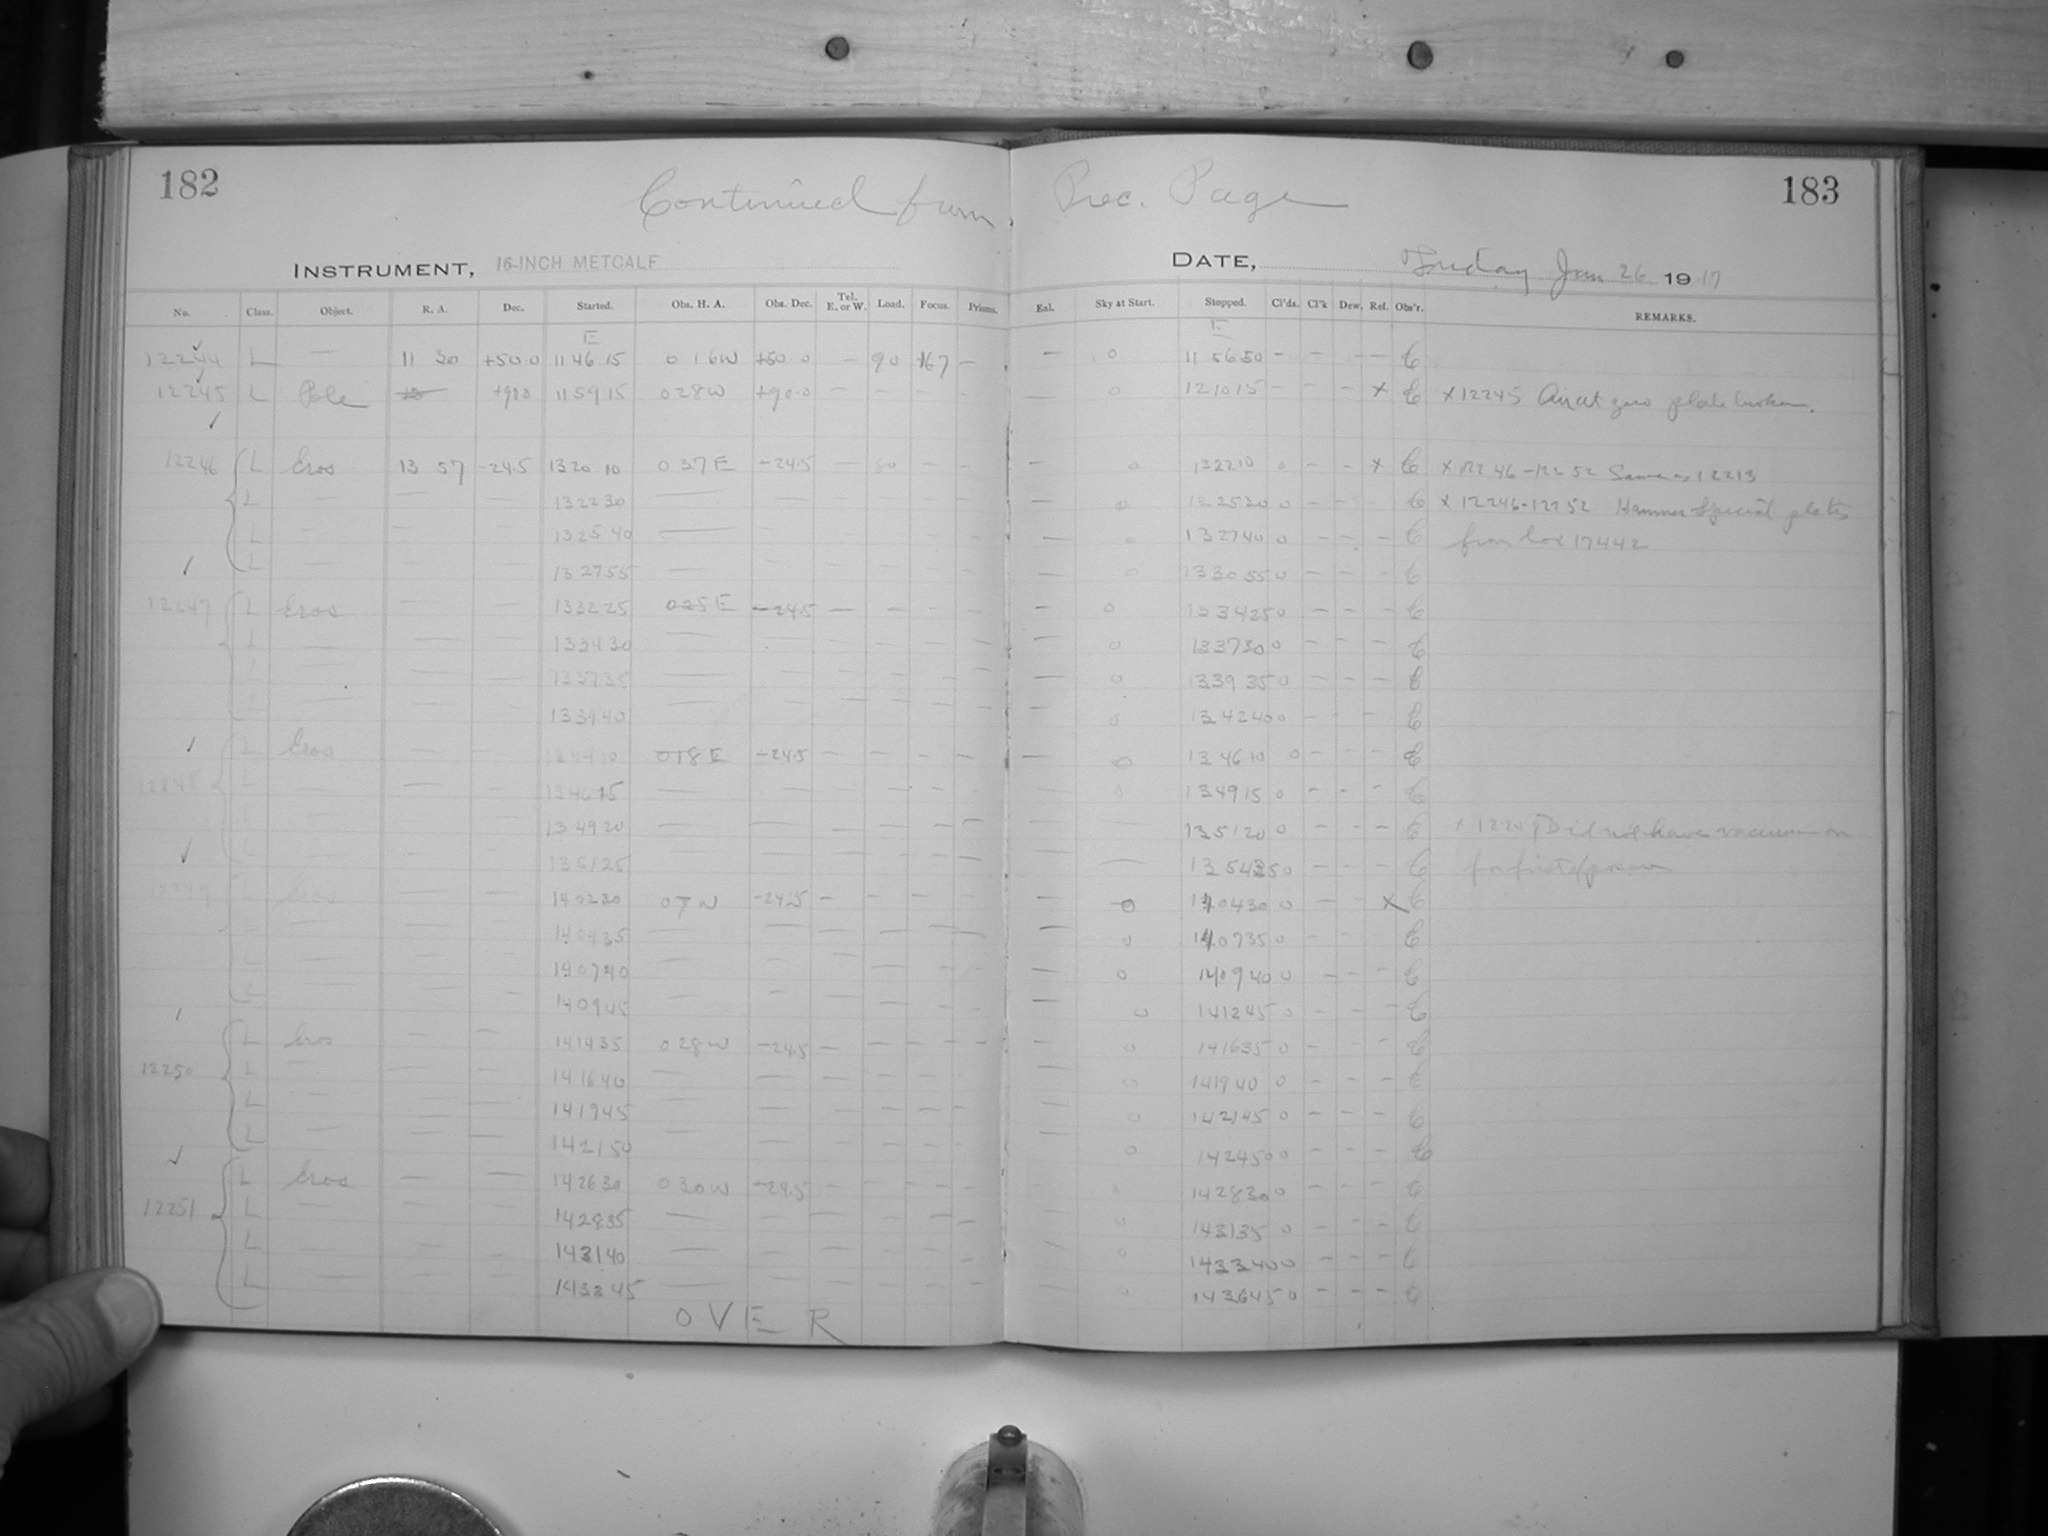 182 183
Continued from Prec. Page
INSTRUMENT, 16-INCH METCALF DATE, Friday Jan 26 1917
No. Class. Object. R. A. Dec. Started. Obs. H. A. Obs. Dec. Tel. E. or W. Load. Focus. Prisms. Eal. Sky at Start. Stopped. Cl'ds. Cl'k Dew. Ref. Obs'r. REMARKS.
E E
12244 L — 11 30 +50.0 11 46 15 0 16 W +50.0 — 90 167 — — 0 11 56 50 — — — — C
12245 L Pole +90.0 11 59 15 0 28 W +90.0 — — — — — 0 12 10 15 — — — x C x 12245 Air at zero plate broken.
12246 L Eros 13 57 -24.5 13 20 10 0 37 E -24.5 — 80 — — — 0 13 22 10 0 — — x C x 12246-12252 Same as 12213
L — — — 13 22 30 — — — — — — 0 13 25 30 0 — — — C x 12246-12252 Hammer Special plates
L — — — 13 25 40 — — — — — — 0 13 27 40 0 — — — C from box 17442
L — — — 13 27 55 — — — — — — 0 13 30 55 0 — — — C
12247 L Eros — — 13 32 25 0 25 E -24.5 — — — — — 0 13 34 25 0 — — — C
L — — — 13 34 30 — — — — — — — 0 13 37 30 0 — — — C
L — — — 13 37 35 — — — — — — — 0 13 39 35 0 — — — C
L — — — 13 39 40 — — — — — — 0 13 42 40 0 — — — C
12248 L Eros — — 13 44 10 0 18 E -24.5 — — — — — 0 13 46 10 0 — — — C
L — — — 13 46 15 — — — — — — 0 13 49 15 0 — — — C
L — — — 13 49 20 — — — — — — — 13 51 20 0 — — — C Did not have vacuum on
L — — — 13 51 25 — — — — — — — 0 — — — C for first
12249 Eros — — 14 02 30 0 7 W -24.5 — — — — — 0 14 04 30 0 — — x C
— — — 14 04 35 — — — — — — — 0 14 07 35 0 — — — C
L — — — 14 07 40 — — — — — — — 0 14 09 40 0 — — — C
L — — — 14 09 45 — — — — — — — 0 14 12 45 0 — — — C
12250 L Eros — — 14 14 35 0 28 W -24.5 — — — — — — 0 14 16 35 0 — — — C
L — — — 14 16 40 — — — — — — — 0 14 19 40 0 — — — C
L — — — 14 19 45 — — — — — — — 0 14 21 45 0 — — — C
L — — — 14 21 50 — — — — — — — 0 14 24 50 0 — — — C
12251 L Eros — — 14 26 30 0 30 W -24.5 — — — — 0 14 28 30 0 — — — C
L — — — 14 28 35 — — — — — — — 0 14 31 35 0 — — — C
L — — — 14 31 40 — — — — — — — 0 14 33 40 0 — — — C
L — — — 14 33 45 — — — — — — — 0 14 36 45 0 — — — C
OVER